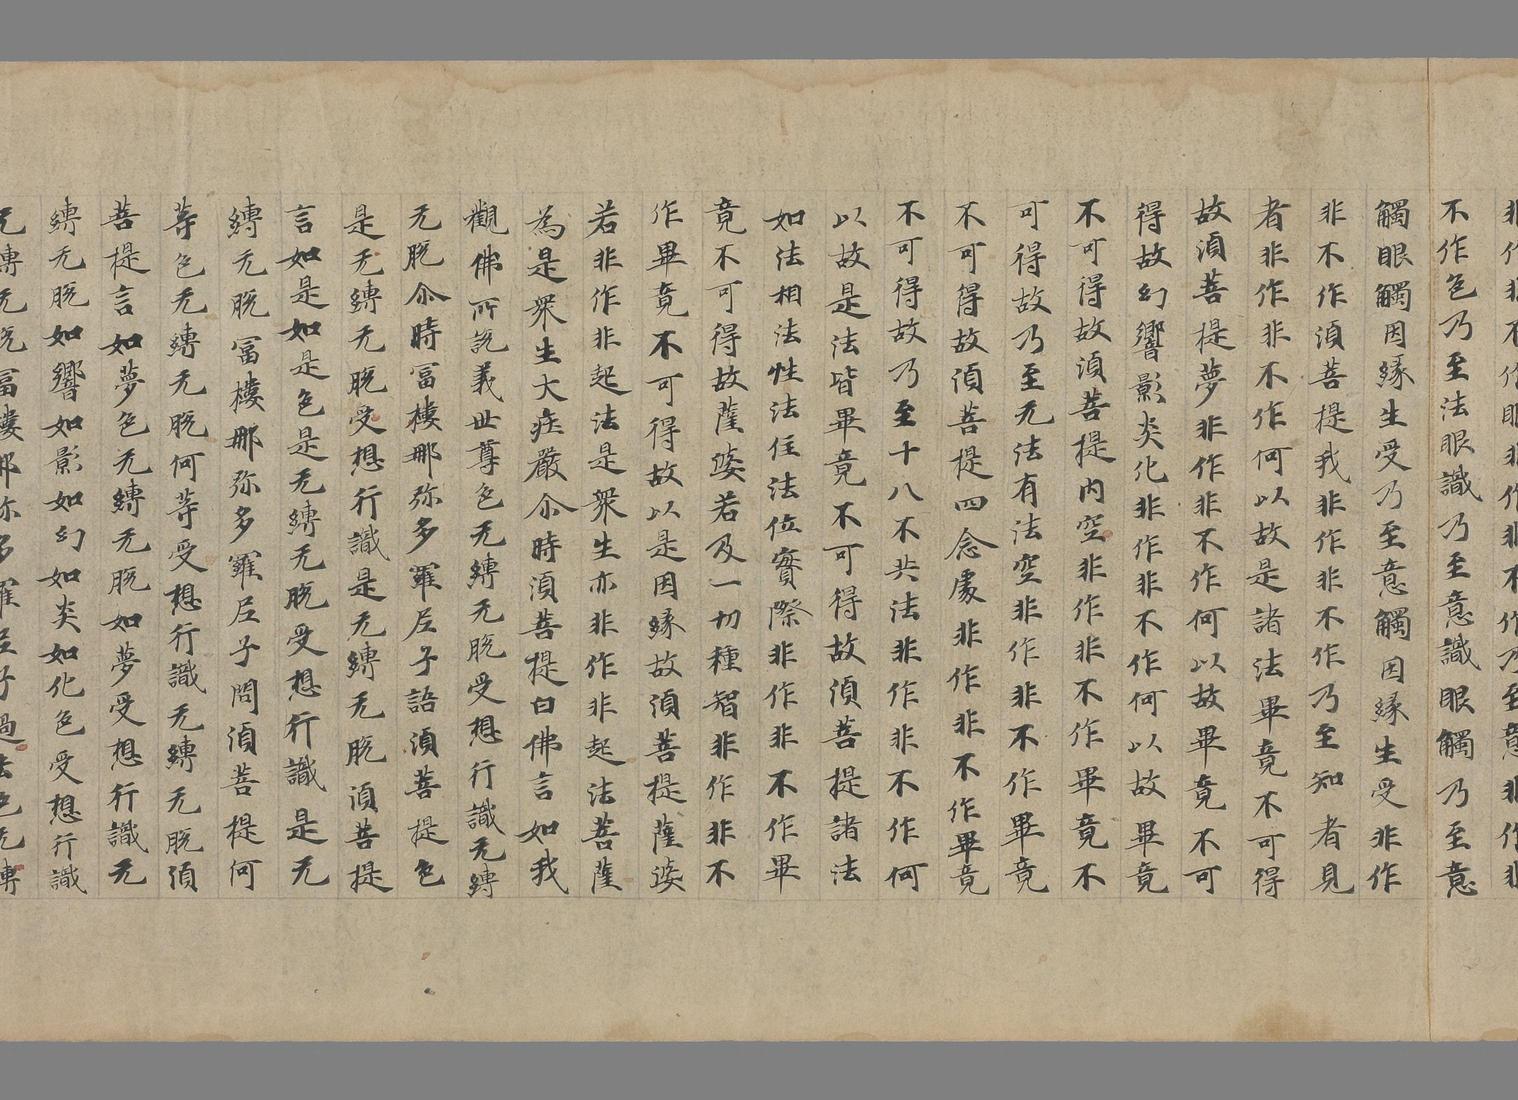 不作色乃至法眼識乃至意識眼觸乃至意
觸眼觸因緣生受乃至意觸因緣生受非作
非不作湏菩提我非作非不作乃至知者見
者非作非不作何以故是諸法畢竟不可得
故湏菩提夢非作非不作何以故畢竟不可
得故幻響影炎化非作非不作何以故畢竟
不可得故湏菩提内空非作非不作畢竟不
可得故乃至无法有法空非作非不作畢竟
不可得故湏菩提四念處非作非不作畢竟
不可得故乃至十八不共法非作非不作何
以故是法皆畢竟不可得故湏菩提諸法
如法相法性法住法位實際非作非不作畢
竟不可得故薩婆若及一切種智非作非不
作畢竟不可得故以是因緣故湏菩提薩婆
若非作非起法是衆生亦非作非起法菩薩
為是衆生大莊嚴尒時湏菩提白佛言如我
觀佛所說義世尊色无縛无脫受想行識无縛
无脫尒時富樓那弥多羅尼子語湏菩提色
是无縛无脫受想行識是无縛无脫湏菩提
言如是如是色是无縛无脫受想行識是无
縛无脫富樓那弥多羅尼子問湏菩提何
等色无縛无脫何等受想行識无縛无脫湏
菩提言如夢色无縛无脫如夢受想行識无
縛无脫如響如影如幻如炎如化色受想行識